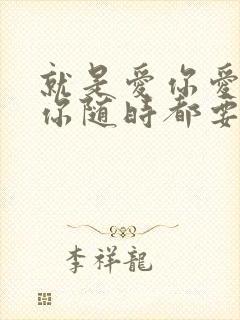 就是愛你愛
你随時都要
李祥龍